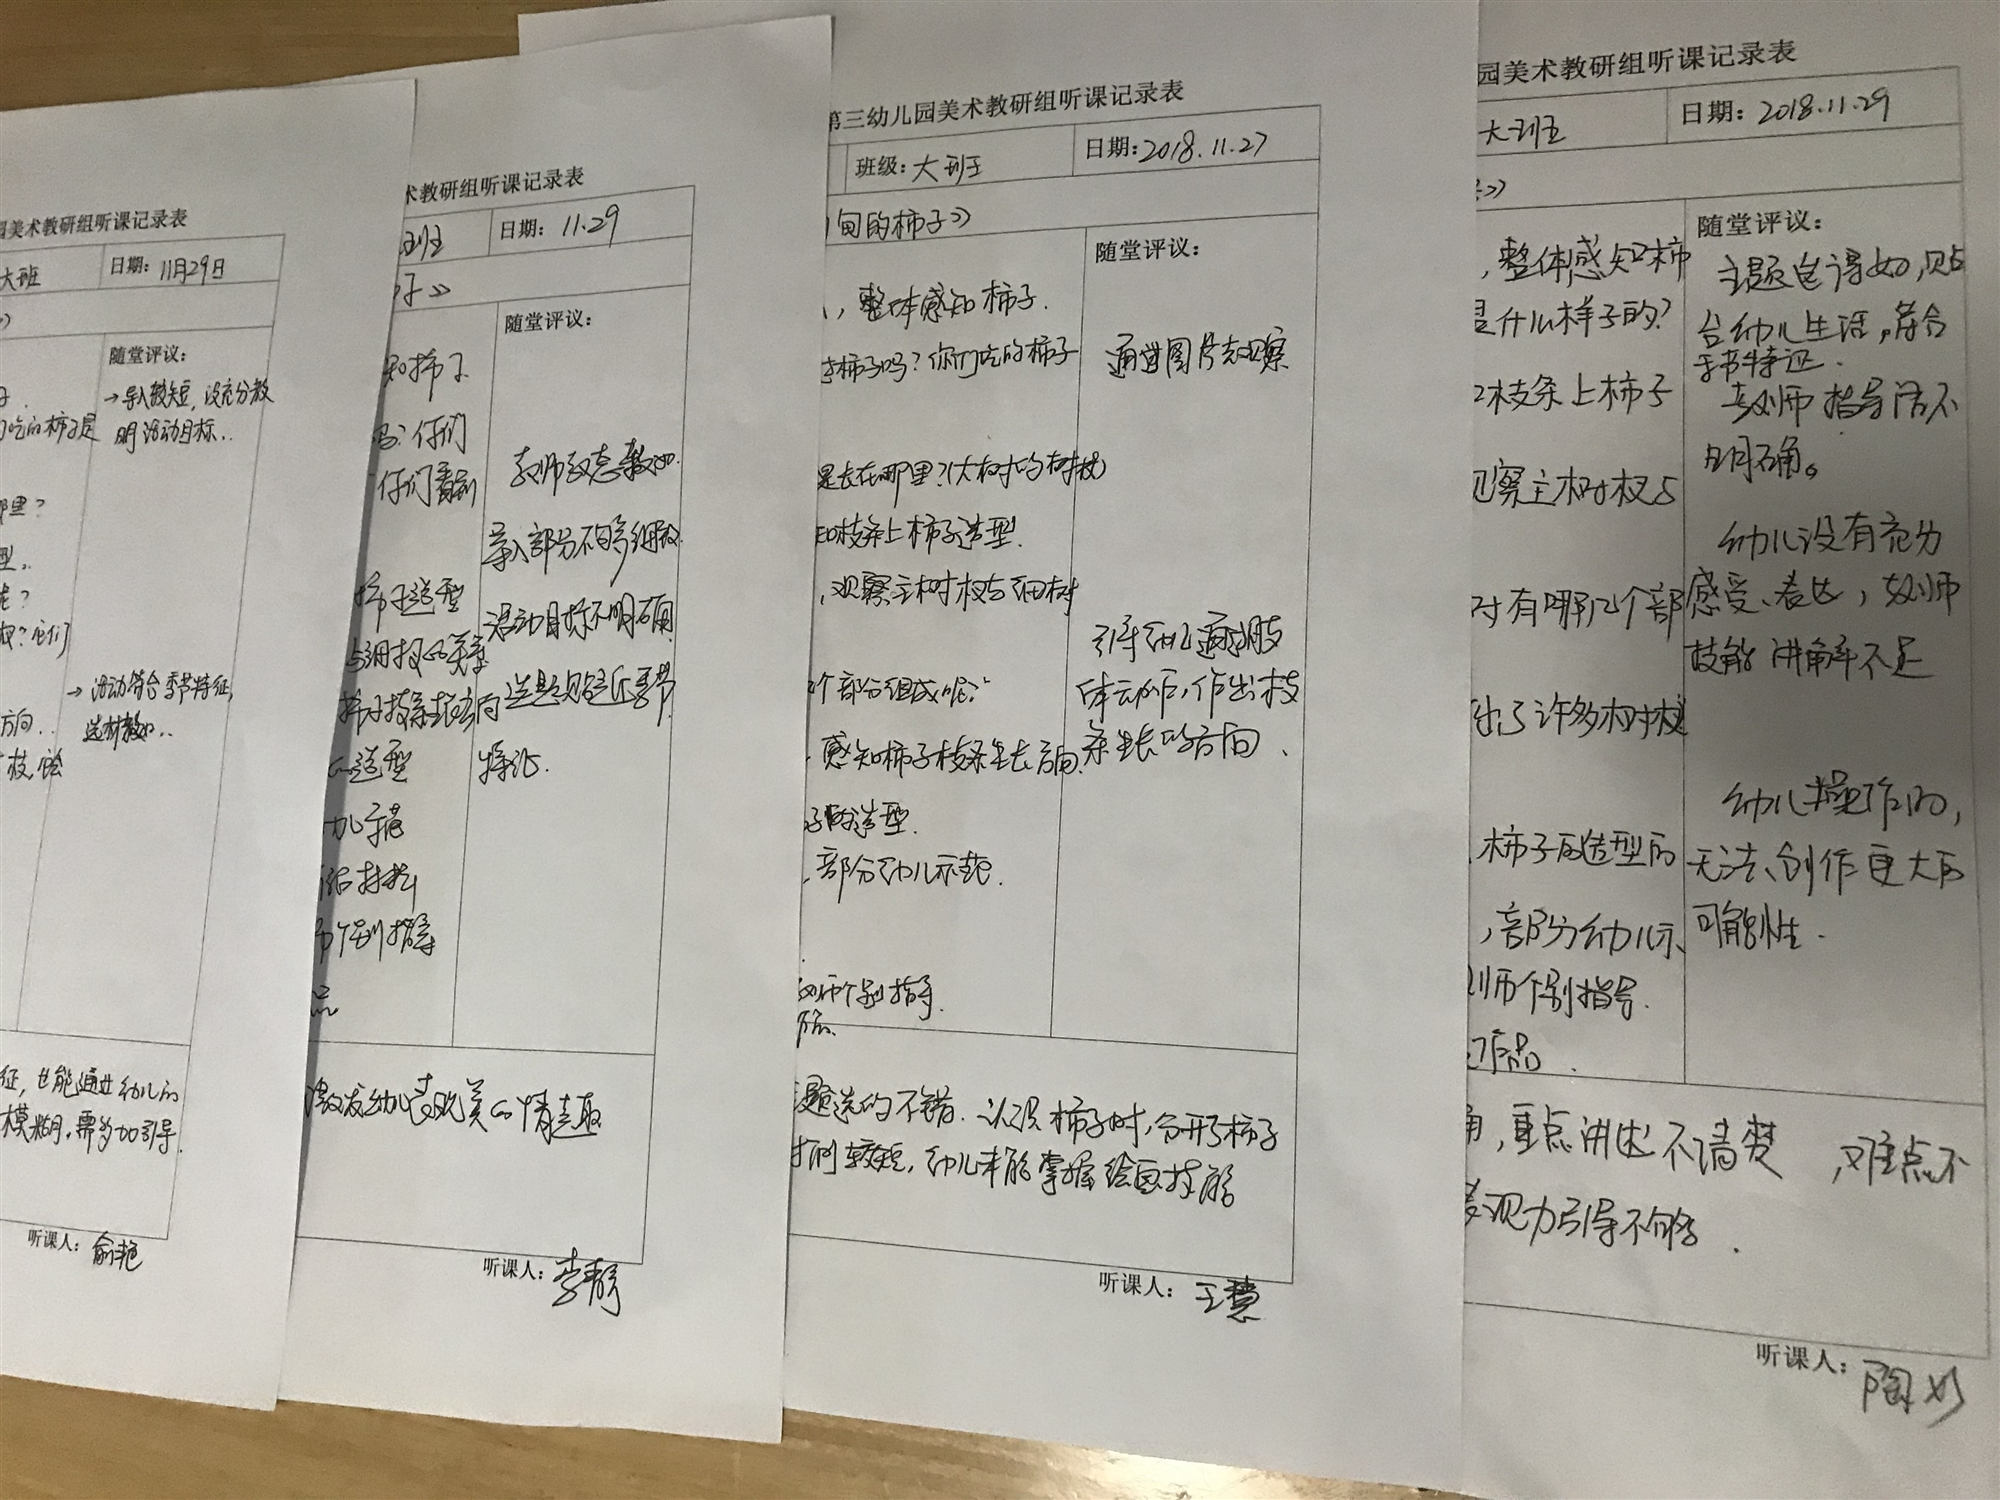 园美术教研组听课记录表
大班
日期：11月29日
随堂评议：
→导入较短，没充分表
明活动目标..
吃的柿子是
那里？
型..
？它们
→活动符合季节特征，
选材较好..
方向..
征，也能通过幼儿的
模糊，需多加引导.
听课人：俞艳
术教研组听课记录表
班
日期：11.29
子》
随堂评议：
知柿子
吗？你们
你们看到
教师教态较好.
导入部分不够细致.
柿子造型
活动目标不明确
与细枝的关系
选题贴近季节
特征.
造型
个别指导
激发幼儿表现美的情趣
听课人：李静
第三幼儿园美术教研组听课记录表
班级：大班
日期：2018.11.27
旬的柿子》
随堂评议：
，整体感知柿子.
柿子吗？你们吃的柿子
通过图片去观察
是长在哪里？（大树的树枝
和枝条上柿子造型.
，观察主树枝与细树
引导幼儿通过肢
个部分组成呢？
体动作，作出枝
感知柿子枝条生长方向.
条生长的方向、
子的造型.
，部分幼儿示范.
教师个别指导.
题选的不错.认识柿子时，分开了柿子
时间较短，幼儿未能掌握绘画技能
听课人：王慧
园美术教研组听课记录表
大班
日期：2018.11.29
随堂评议：
，整体感知柿
主题选得好，贴
是什么样子的？
合幼儿生活，符合
季节特征.
枝条上柿子
教师指导语不
明确。
观察主树枝与
幼儿没有充分
树有哪几个部
感受、表达，教师
技能讲解不足
出了许多树枝
幼儿操作时，
柿子的造型的
无法创作更大的
，部分幼儿示、
可能性.
教师个别指导.
作品.
确，重点讲述不清楚，难点不
表现力引导不够.
听课人：陶好